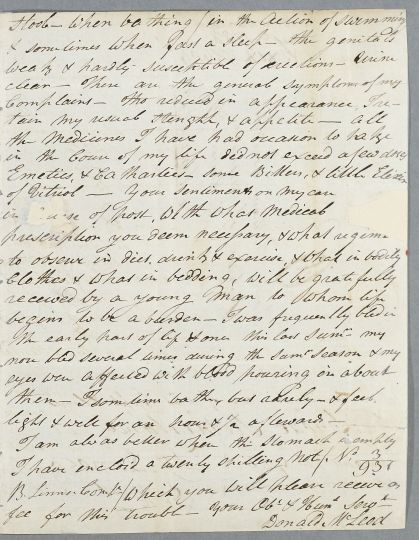 Stool – When bathing / in the action of swimming
& sometimes when fast a sleep – the genitals
weak & hardly susceptible of erections – Urine
clear – These are the general symptoms of my
Complaint – Tho reduced in appearance, Re-
tain my usual strenght, & appetite – all
the Medicines I have had occasion to take
in the Cours of my life did not exceed a few doses
Emetics, & Cathartics – some Bitters, & little Elixir
of Vitriol – Your sentiments on my case
in of post, With what Medical
prescription you deem necessary, & what regimen
to observe in diet, drink & exercise, & what in bodily
Clothes & what in bedding, will be gratefully
received by a young Man to whom life
begins to be a burden – I was frequently bled in
the early part of life & once this last Sumr my
nose bled several times during the same season & my
eyes were affected with blood pouring in about
them – I sometimes bathe, but rarely – & feel
light & well for an hour & ½ afterwards –
I am always better when the Stomach is empty
I have enclosed a twenty shilling Note / No 3/931
B. Linnen Compy / Which you will please receive as
fee for this trouble – Your Obt & Humle Servt
Donald McLeod